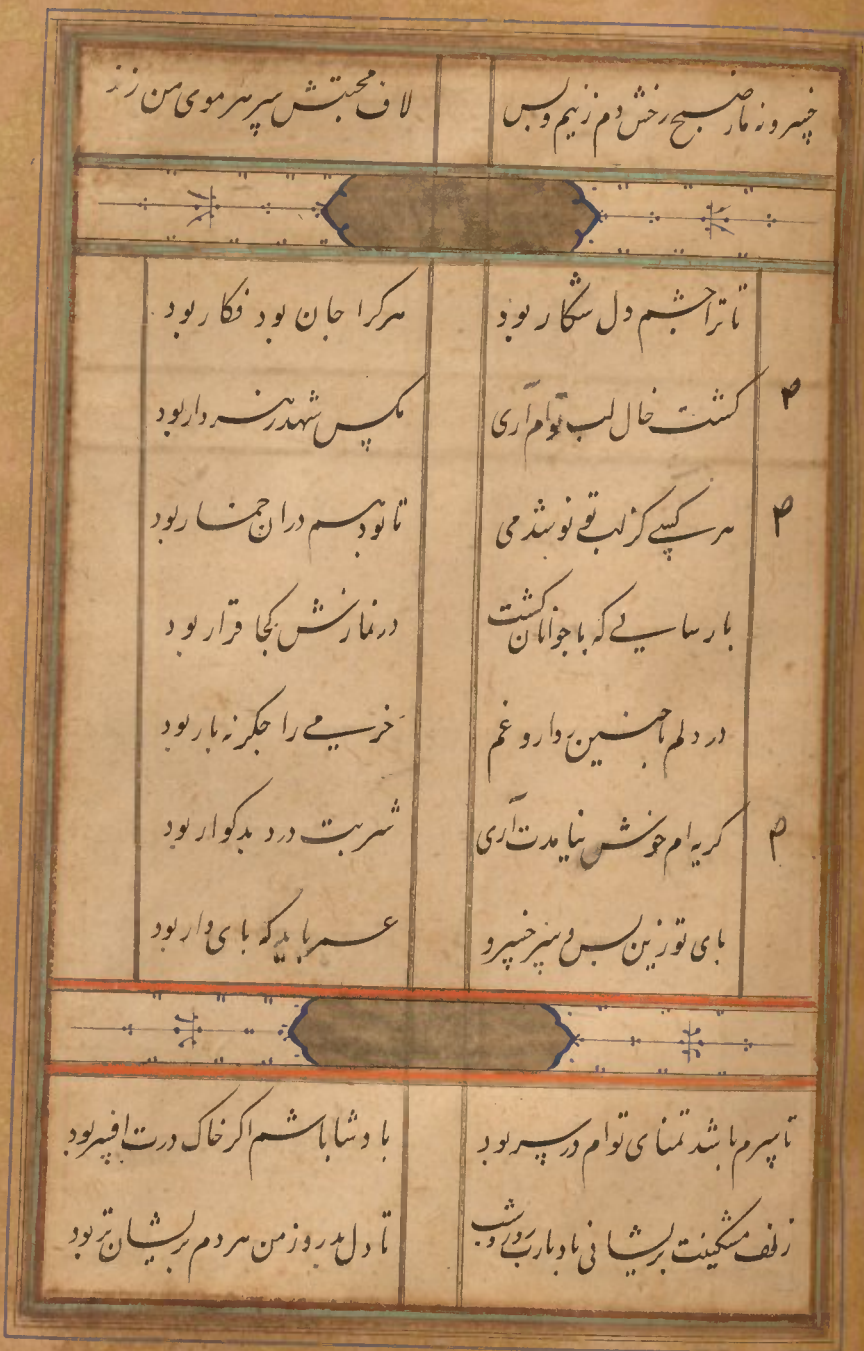 خسرو نه ماز صبح رخش دم زنیم وبس لاف محبتش سر هر موی من زند
تا ترا چشم دل شکار بود هر کرا جان بود فکار بود
کشت خال لب توام آری مکس شهد زهردار بود
هر کسی کز لب تو نوشد می تا بود هم دران خمار بود
پارسایی که با جوانان کشت در نمازش کجا قرار بود
در دلم با چنین دارو غم خرمی را جکرنه بار بود
کریه ام خوش نیامدت آری شربت درد بدکوار بود
پای تو زین پس و سر خسرو عمر باید که پای دار بود
تا سرم باشد تمنای توام در سر بود پادشا باشم اکر خاک درت افسر بود
زلف مشکینت پریشانی باد یارب روز و شب تا دل بدروز من هر دم پریشان تر بود